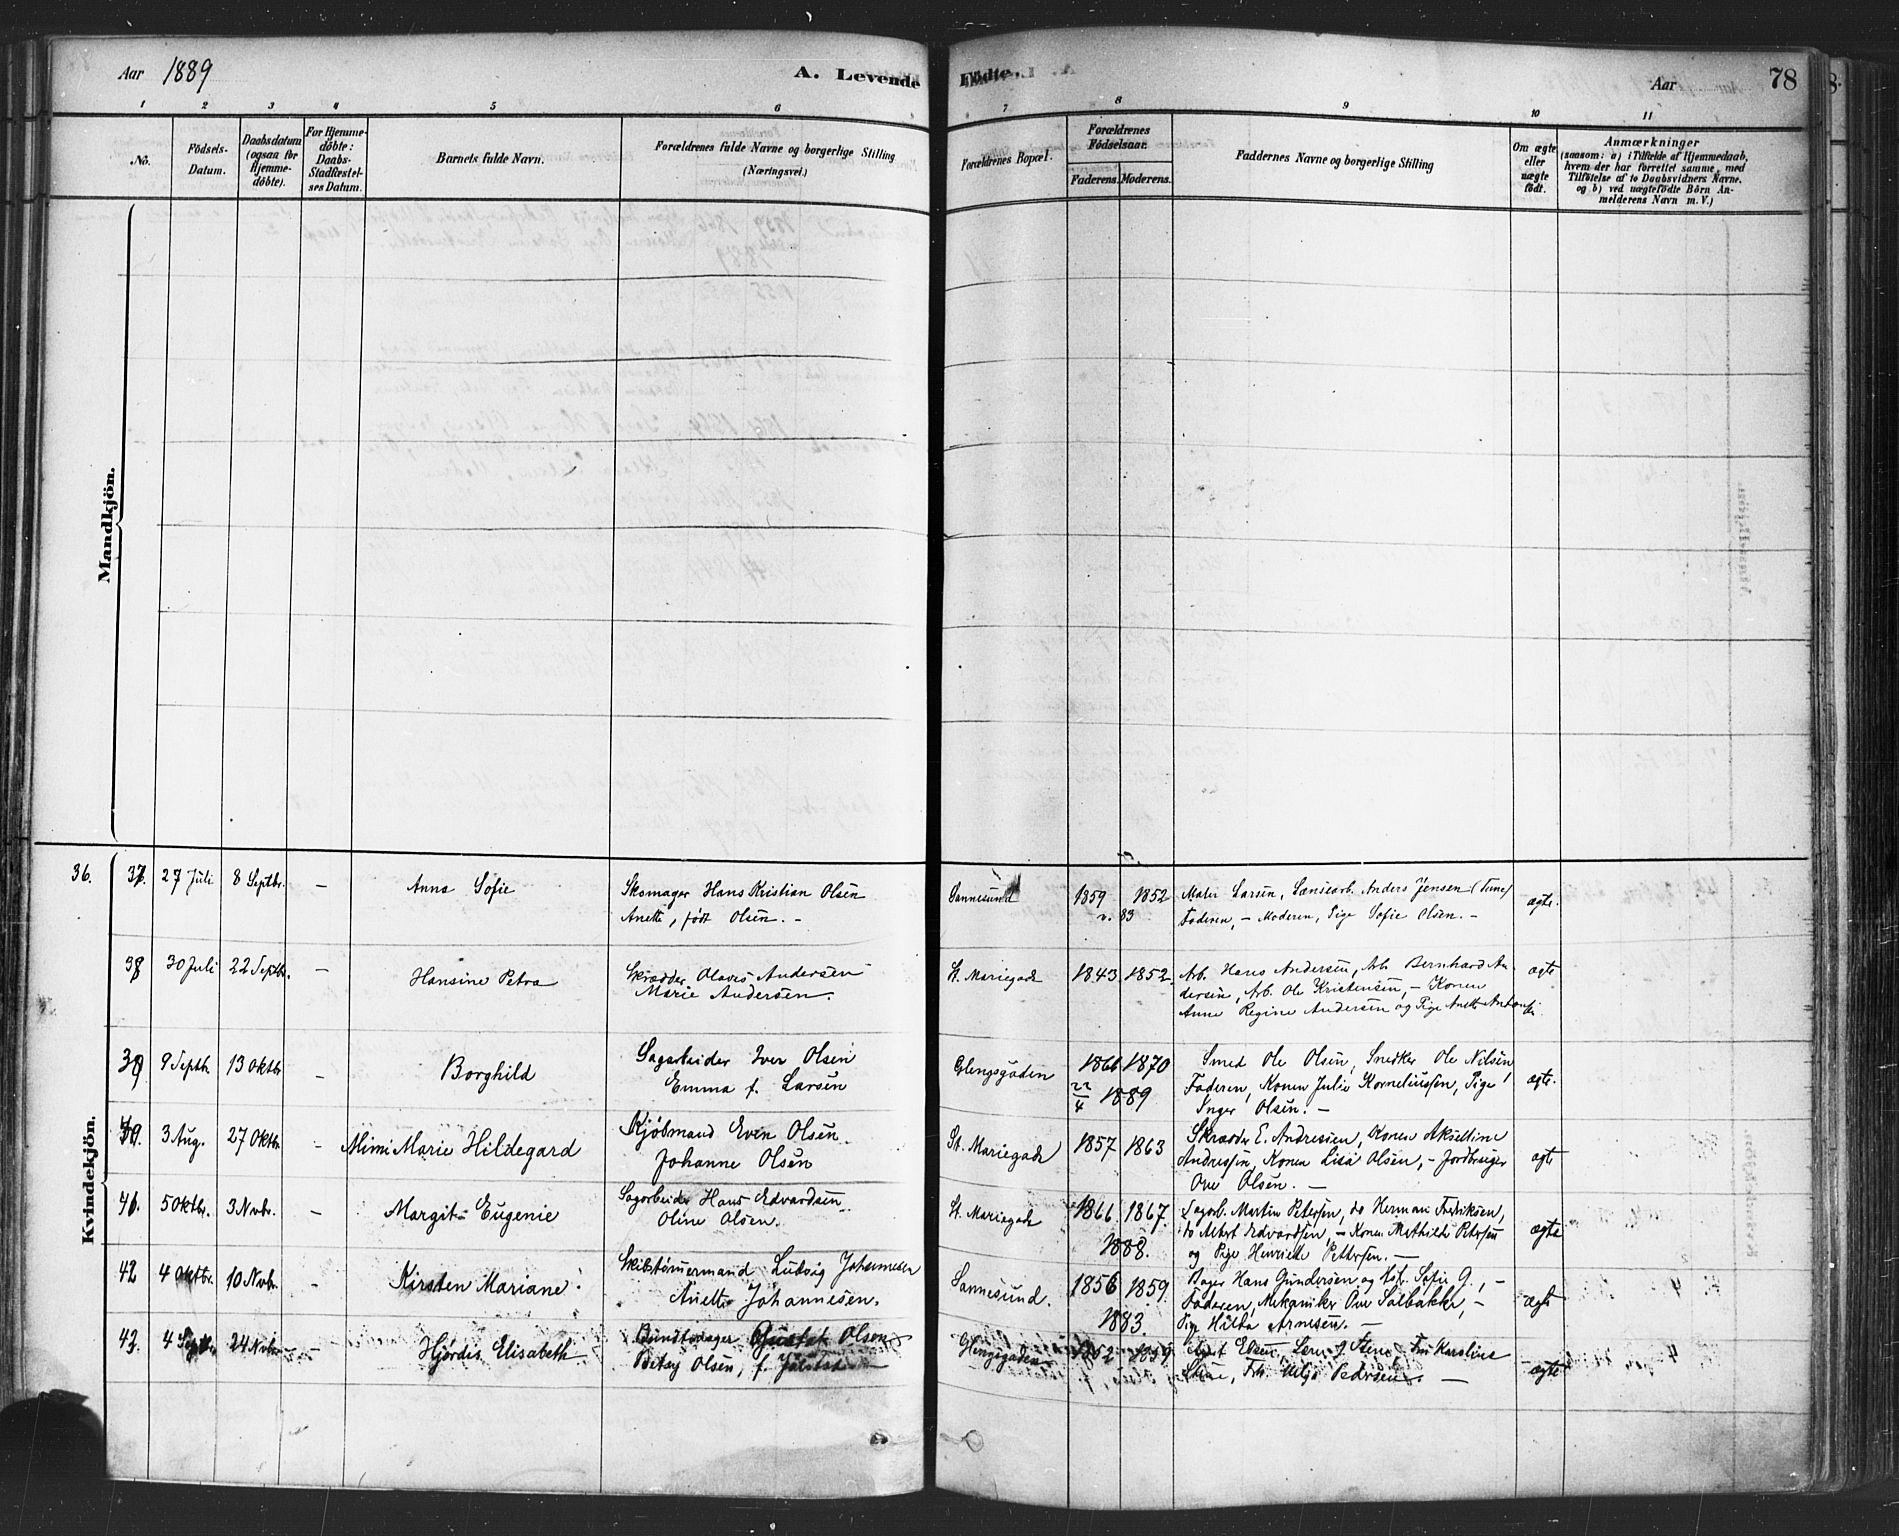 Aar 1889
A. Levende
Födte.
Aar
78
1 2 3 4 5 6 7 8 9 10 11
No.
Födsels-
Datum.
Daabsdatum
(ogsaa for
Hjemme-
döbte).
For Hjemme-
döbte:
Daabs-
Stadfæstel-
ses Datum.
Barnets fulde Navn.
Forældrenes fulde Navne og borgerlige Stilling
(Næringsvei.)
Forældrenes Bopæl.
Forældrenes
Födselsaar.
Faderens. Moderens.
Faddernes Navne og borgerlige Stilling
Om ægte
eller
uægte
födt.
Anmærkninger
(saasom: a) i Tilfælde af Hjemmedaab,
hvem der har forrettet samme, med
Tilföielse af to Daabsvidners Navne,
og b) ved uægtefödte Börn An-
melderens Navn m. V.)
Mandkjön.
Kvindekjön.
36. 37. 27 Juli 8 Septbr. — Anna Sofie
Skomager Hans Kristian Olsen
Anette, født Olsen. —
Sannesund 1859 1852
v. 83
Larsen, Anders Jensen (Tune)
Faderen, — Moderen, Pige Sofie Olsen. —
ægte.
38 30 Juli 22 Septbr. — Hansine Petra
Skrædder Olavus Andersen
Marie Andersen.
St. Mariegade 1843 1852.
Arb. Hans Andersen, Arb. Bernhard An-
dersen, Arb. Ole Kristensen, — Konen
Anne Regine Andersen og Pige Anette
ægte
39 9 Septb. 13 Oktb. — Borghild
Sagarbeider Iver Olsen
Emma f. Larsen
Glengsgaden 1866 1870
22/4 1889
Smed Ole Olsen, Snedker Ole Nilsen
Faderen, Konen Julie Korneliussen, Pige
Inger Olsen. —
ægte.
3 Aug. 27 Oktbr. — Mimi Marie Hildegard
Kjøbmand Even Olsen
Johanne Olsen
St. Mariegade 1857 1863
Skrædder E. Andresen, Konen Akseltine
Andressen, Konen Lisa Olsen, — Jordbruger
Ove Olsen. —
ægte
41. 5 Oktbr. 3 Nvbr. — Margit Eugenie
Sagarbeider Hans Edvardsen
Oline Olsen.
St. Mariegade 1866. 1867.
1888.
Sagarb. Martin Petersen, do Herman Fredriksen,
do Albert Edvardsen, — Konen Mathilde Petersen
og Pige Henriette Pettersen. —
ægte
42 4 Oktbr. 10 Nvbr. — Kirsten Mariane
Skibstømmermand Ludvig Johannesen
Anette Johannesen.
Sannesund. 1856 1859.
1883.
Bager Hans Gundersen og Hst. Sofie G., —
Faderen, Mekaniker Ove Solbakke, —
Pige Hilda Arnesen. —
ægte
43. 4 24 Nvbr. — Hjørdis Elisabeth
Bundtmager Gustav Olsen
Betsy Olsen, f.
Glengsgaden 1852 1859
Karoline
Stene, Frk. Helga Pedersen. —
ægte